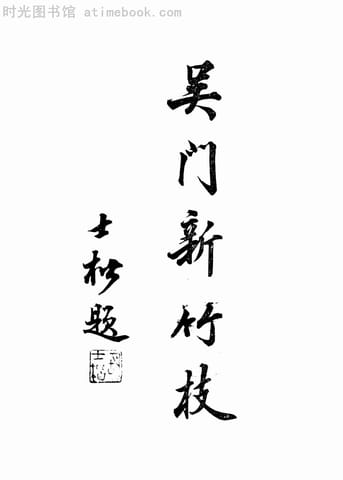 时光图书馆 atimebook.com
吴門新竹枝
士松題